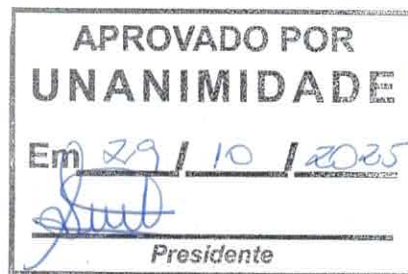 APROVADO POR
UNANIMIDADE
Em 29 / 10 / 2025
Presidente